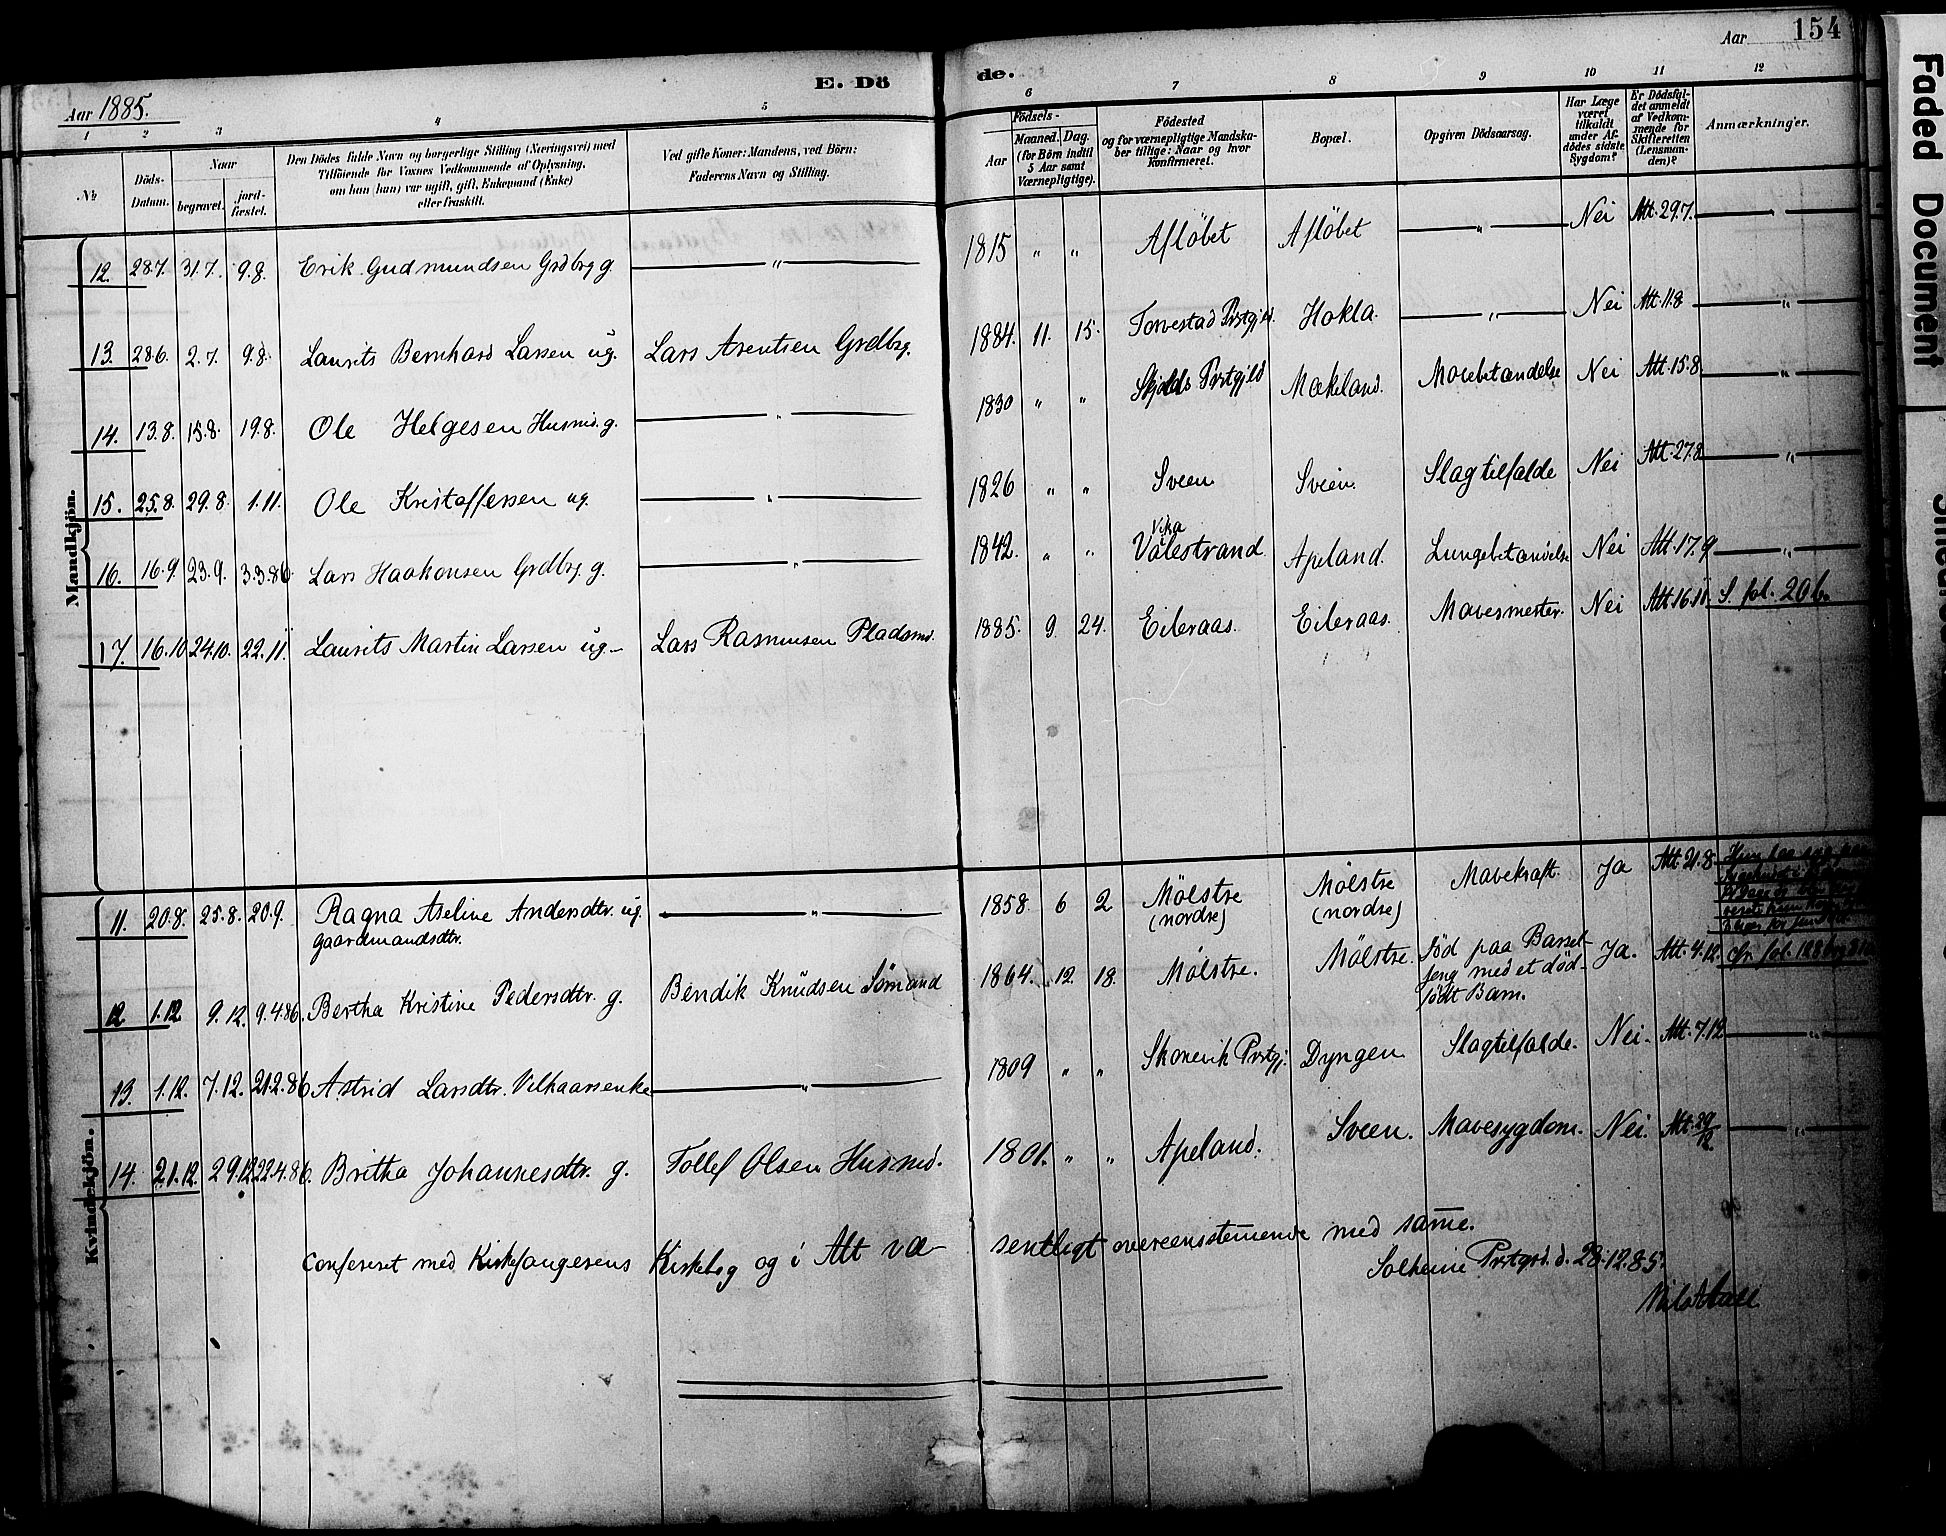 154
Aar 1885.
E. Dö de.
Aar
1 2 3 4 5 6 7 8 9 10 11 12
No.
Döds-Datum.
Naar
begravet.
jordfæstet.
Den Dödes fulde Navn og borgerlige Stilling (Næringsvei) med
Tilföiende for Voxnes Vedkommende af Oplysning,
om han (hun) var ugift, gift, Enkemand (Enke)
eller fraskilt.
Ved gifte Koner: Mandens, ved Börn:
Faderens Navn og Stilling.
Födsels-
Aar
Maaned. Dag.
(for Börn indtil
5 Aar samt
Værnepligtige).
Födested
og for værnepligtige Mandska-
ber tillige: Naar og hvor
konfirmeret.
Bopæl.
Opgiven Dödsaarsag.
Har Læge
været
tilkaldt
under Af-
dödes sidste
Sygdom?
Er Dödsfal-
det anmeldt
af Vedkom-
mende for
Skifteretten
(Lensman-
den)?
Anmærkninger.
Mandkjön.
12. 28.7. 31.7. 9.8. Erik Gudmundsen Grdbrg g. — " — 1815 " " Aflöbet Aflöbet — " — Nei Att. 29.7. — " —
13. 28.6. 2.7. 9.8. Laurits Bernhard Larsen ug. Lars Arentsen Grdbrg. 1884. 11. 15. Torvestad Prstgjld. Hokla. — " — Nei Att. 11.8. — " —
14. 13.8. 15.8. 19.8. Ole Helgesen Husmd. g. — " — 1830 " " Skjolds Prstgjld Mækeland. Mavebetændelse Nei Att. 15.8 — " —
15. 25.8. 29.8. 1.11. Ole Kristoffersen ug. — " — 1826 " " Sveen Sveen. Slagtilfælde Nei Att. 27.8 — " —
16. 16.9. 23.9. 3.3.86. Lars Haakonsen Grdbrg. g. — " — 1842. " " Vika Valestrand Apeland. Lungebetændelse Nei Att. 17.9 — " —
17. 16.10 24.10. 22.11. Laurits Martin Larsen ug. Lars Rasmusen Pladsmd. 1885. 9. 24. Eileraas. Eileraas. Mavesmerter. Nei Att. 16.11. S. fol. 20 b.
Kvindekjön.
11. 20.8. 25.8. 20.9. Ragna Aseline Andersdtr. ug. — " — 1858. 6 2 Mölstre Mölstre Mavekræft. Ja Att. 21.8.
gaardmandsdtr. (nordre) (nordre)
12. 1.12. 9.12. 9.4.86. Bertha Kristine Pedersdtr. g. Bendik Knudsen Sömand 1864. 12. 18. Mölstre. Mölstre. död paa Barsel-
seng med et död-
födt Barn. Ja. Att. 4.12. cfr. fol. 128
13. 1.12. 7.12. 21.2.86 Astrid Larsdtr. Vilkaarsenke — " — 1809 " " Skonevik Prstgj: Dyngen. Slagtilfælde. Nei. Att. 7.12 — " —
14. 21.12. 29.12 22.4.86. Britha Johannesdtr. g. Tollef Olsen Husmd. 1801. " " Apeland. Sveen. Mavesygdom. Nei. Att. 29/12. — " —
Confereret med Kirkesangerens Kirkebog og i Alt væ- sentligt overeensstemende med same.
Solheim Prstgrd. d. 28.12.85.
Faded Document